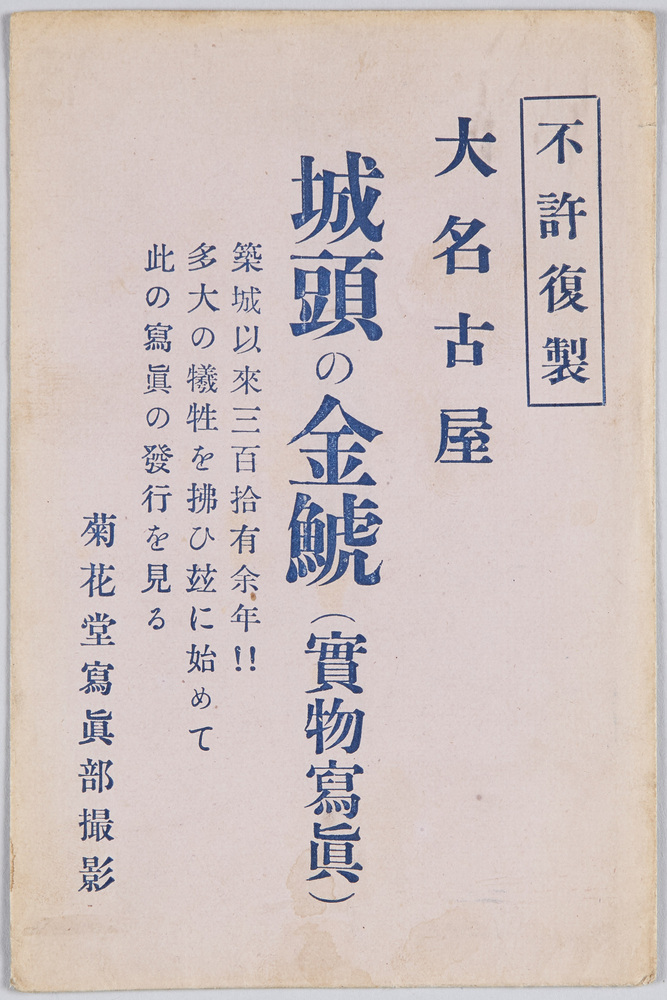 不許復製
大名古屋
城頭の金鯱（實物寫眞）
築城以來三百拾有余年!!
多大の犠牲を拂ひ玆に始めて
此の寫眞の發行を見る
菊花堂寫眞部撮影